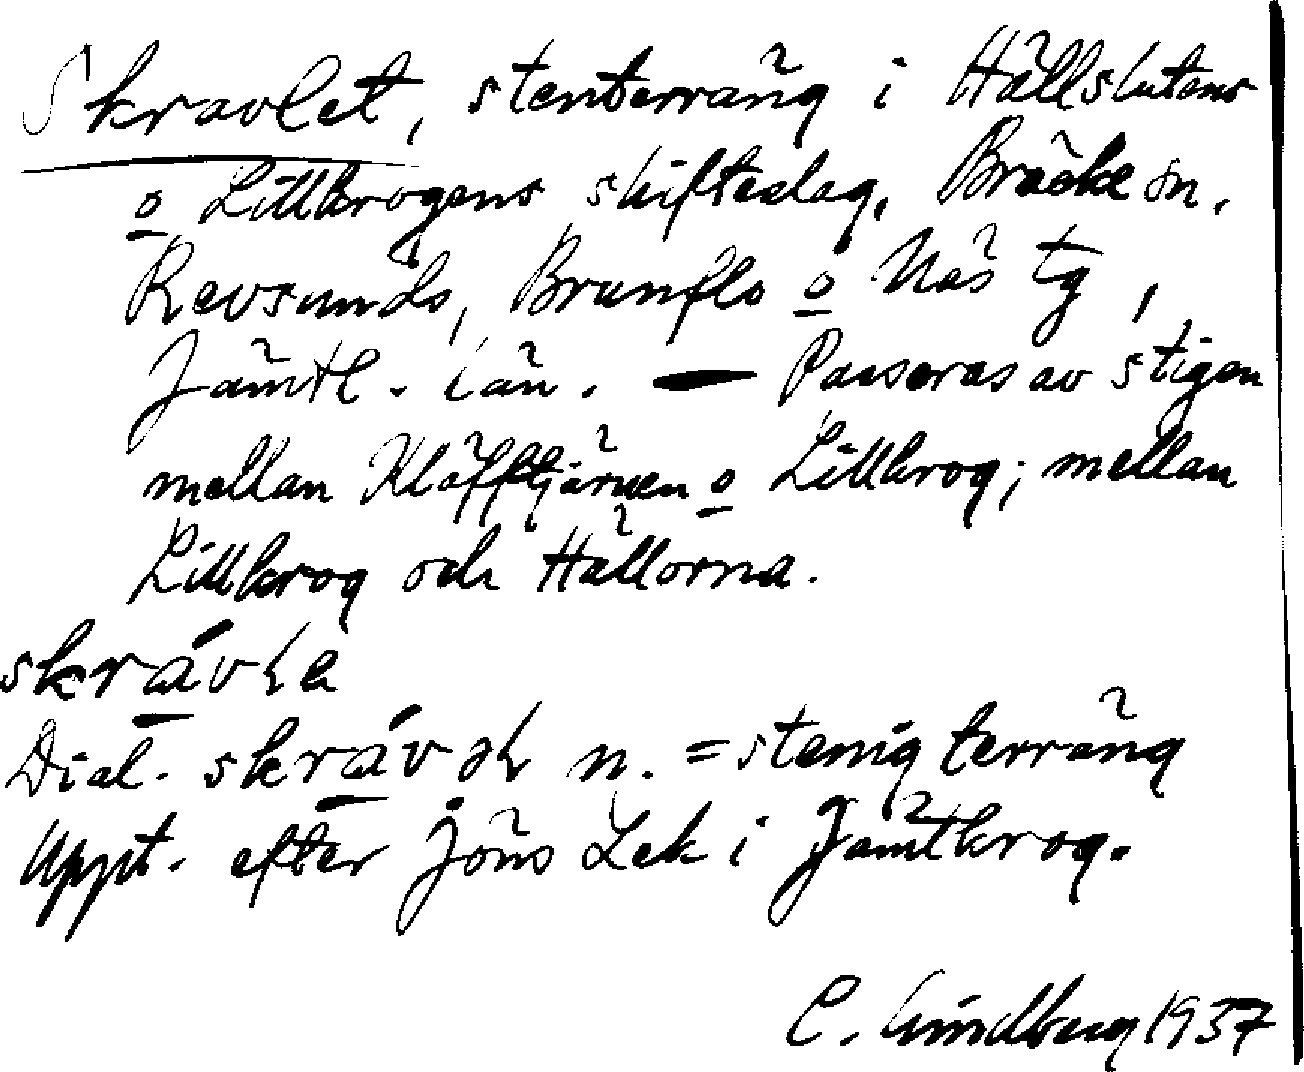 Skravlet, stenterräng i Hällslutens
o Lillkrogens skifteslag, Bräcke sn,
Revsunds, Brunflo o Näs tg,
Jämtl. län. — Passeras av stigen
mellan Klöfftjärnen o Lillkrog; mellan
Lillkrog och Hällorna.
skrávle
Dial. skrávəl n. = stenig terräng
Uppt. efter Jöns Lek i Jämtkrog.
C. Lindberg 1937